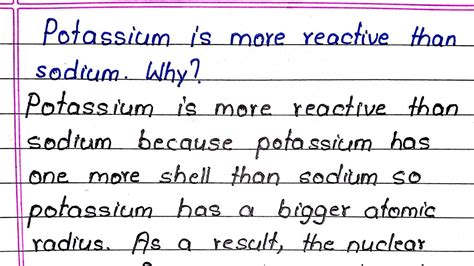 Potassium is more reactive than
sodium. Why?
Potassium is more reactive than
sodium because potassium has
one more shell than sodium so
potassium has a bigger atomic
radius. As a result, the nuclear